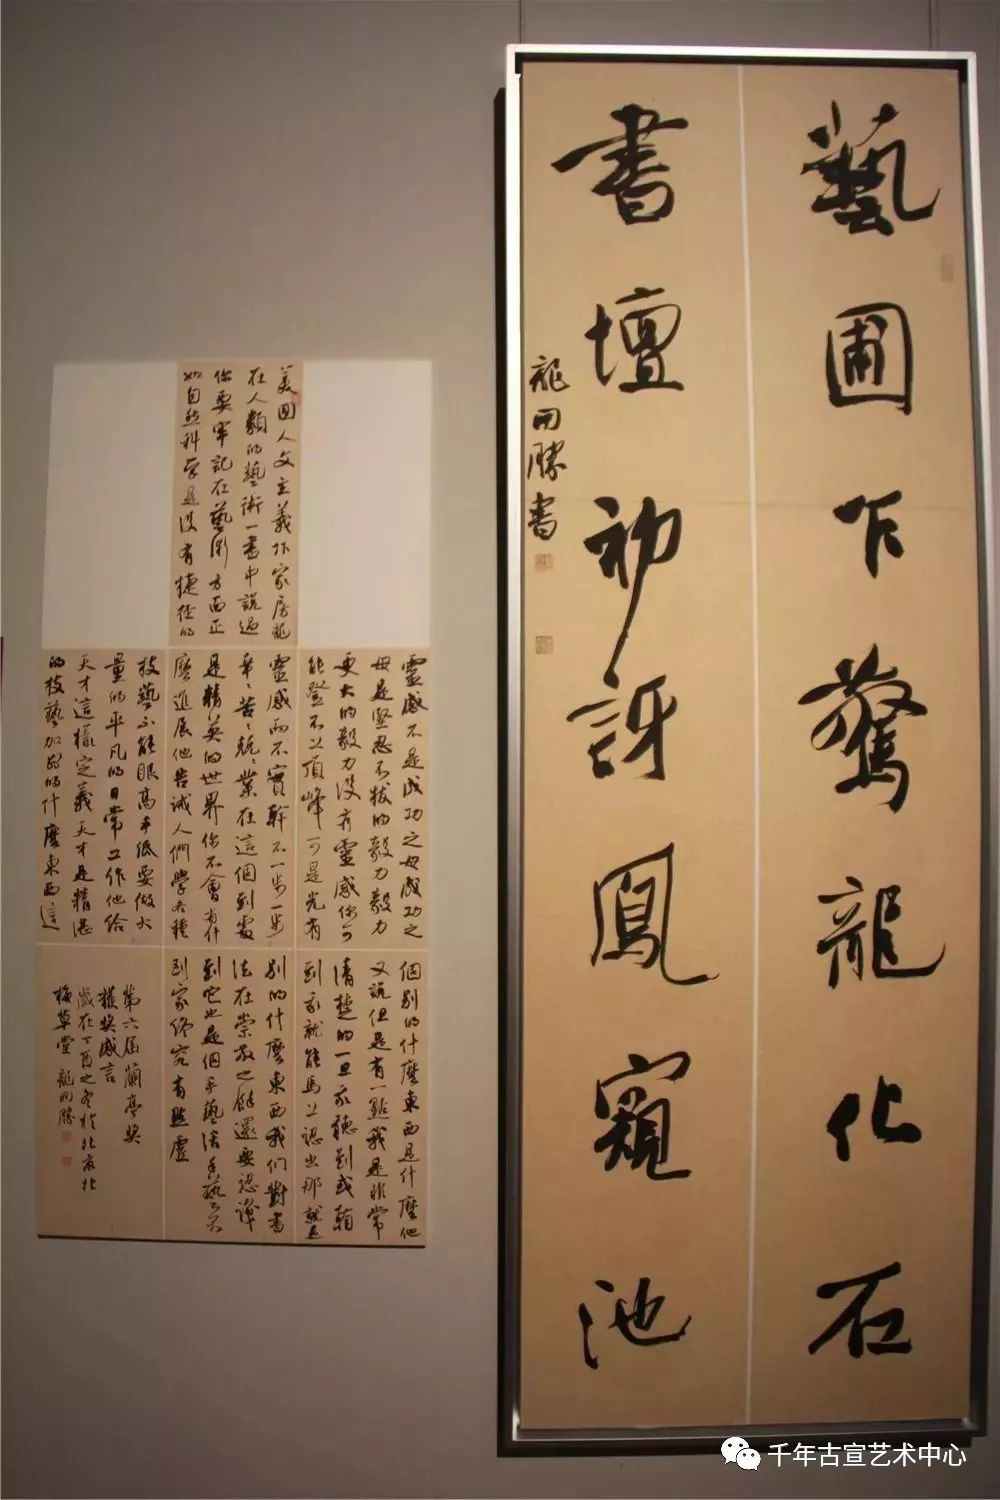 藝圃乍驚龍化石
書壇初訝鳳窺池
龍開勝書
美國人文主義作家房龍
在人類的藝術一書中說過
你要牢記在藝術方面正
如自然科学是没有捷径的
靈感不是成功之母成功之
母是堅忍不拔的毅力毅力
更大的毅力没有靈感你可
能登不上頂峰可是光有
靈感而不實幹不一步一步
辛辛苦苦兢兢業業在這個到處
是精英的世界你不會有什
麼進展他告诫人們学各種
技藝不能眼高手低要做大
量的平凡的日常工作他给
天才這樣定義天才是精湛
的技藝加别的什麼東西這
個别的什麼東西是什麼他
又説但是有一點我是非常
清楚的一旦我聽到或看
到我就能馬上認出那就是
别的什麼東西我们對書
法在崇敬之餘還要認識
到它也是個手藝活
到家终究有點虚
第六届蘭亭奬
獲奬感言
歲在丁酉之冬於北京北
梅草堂 龍開勝
千年古宣艺术中心